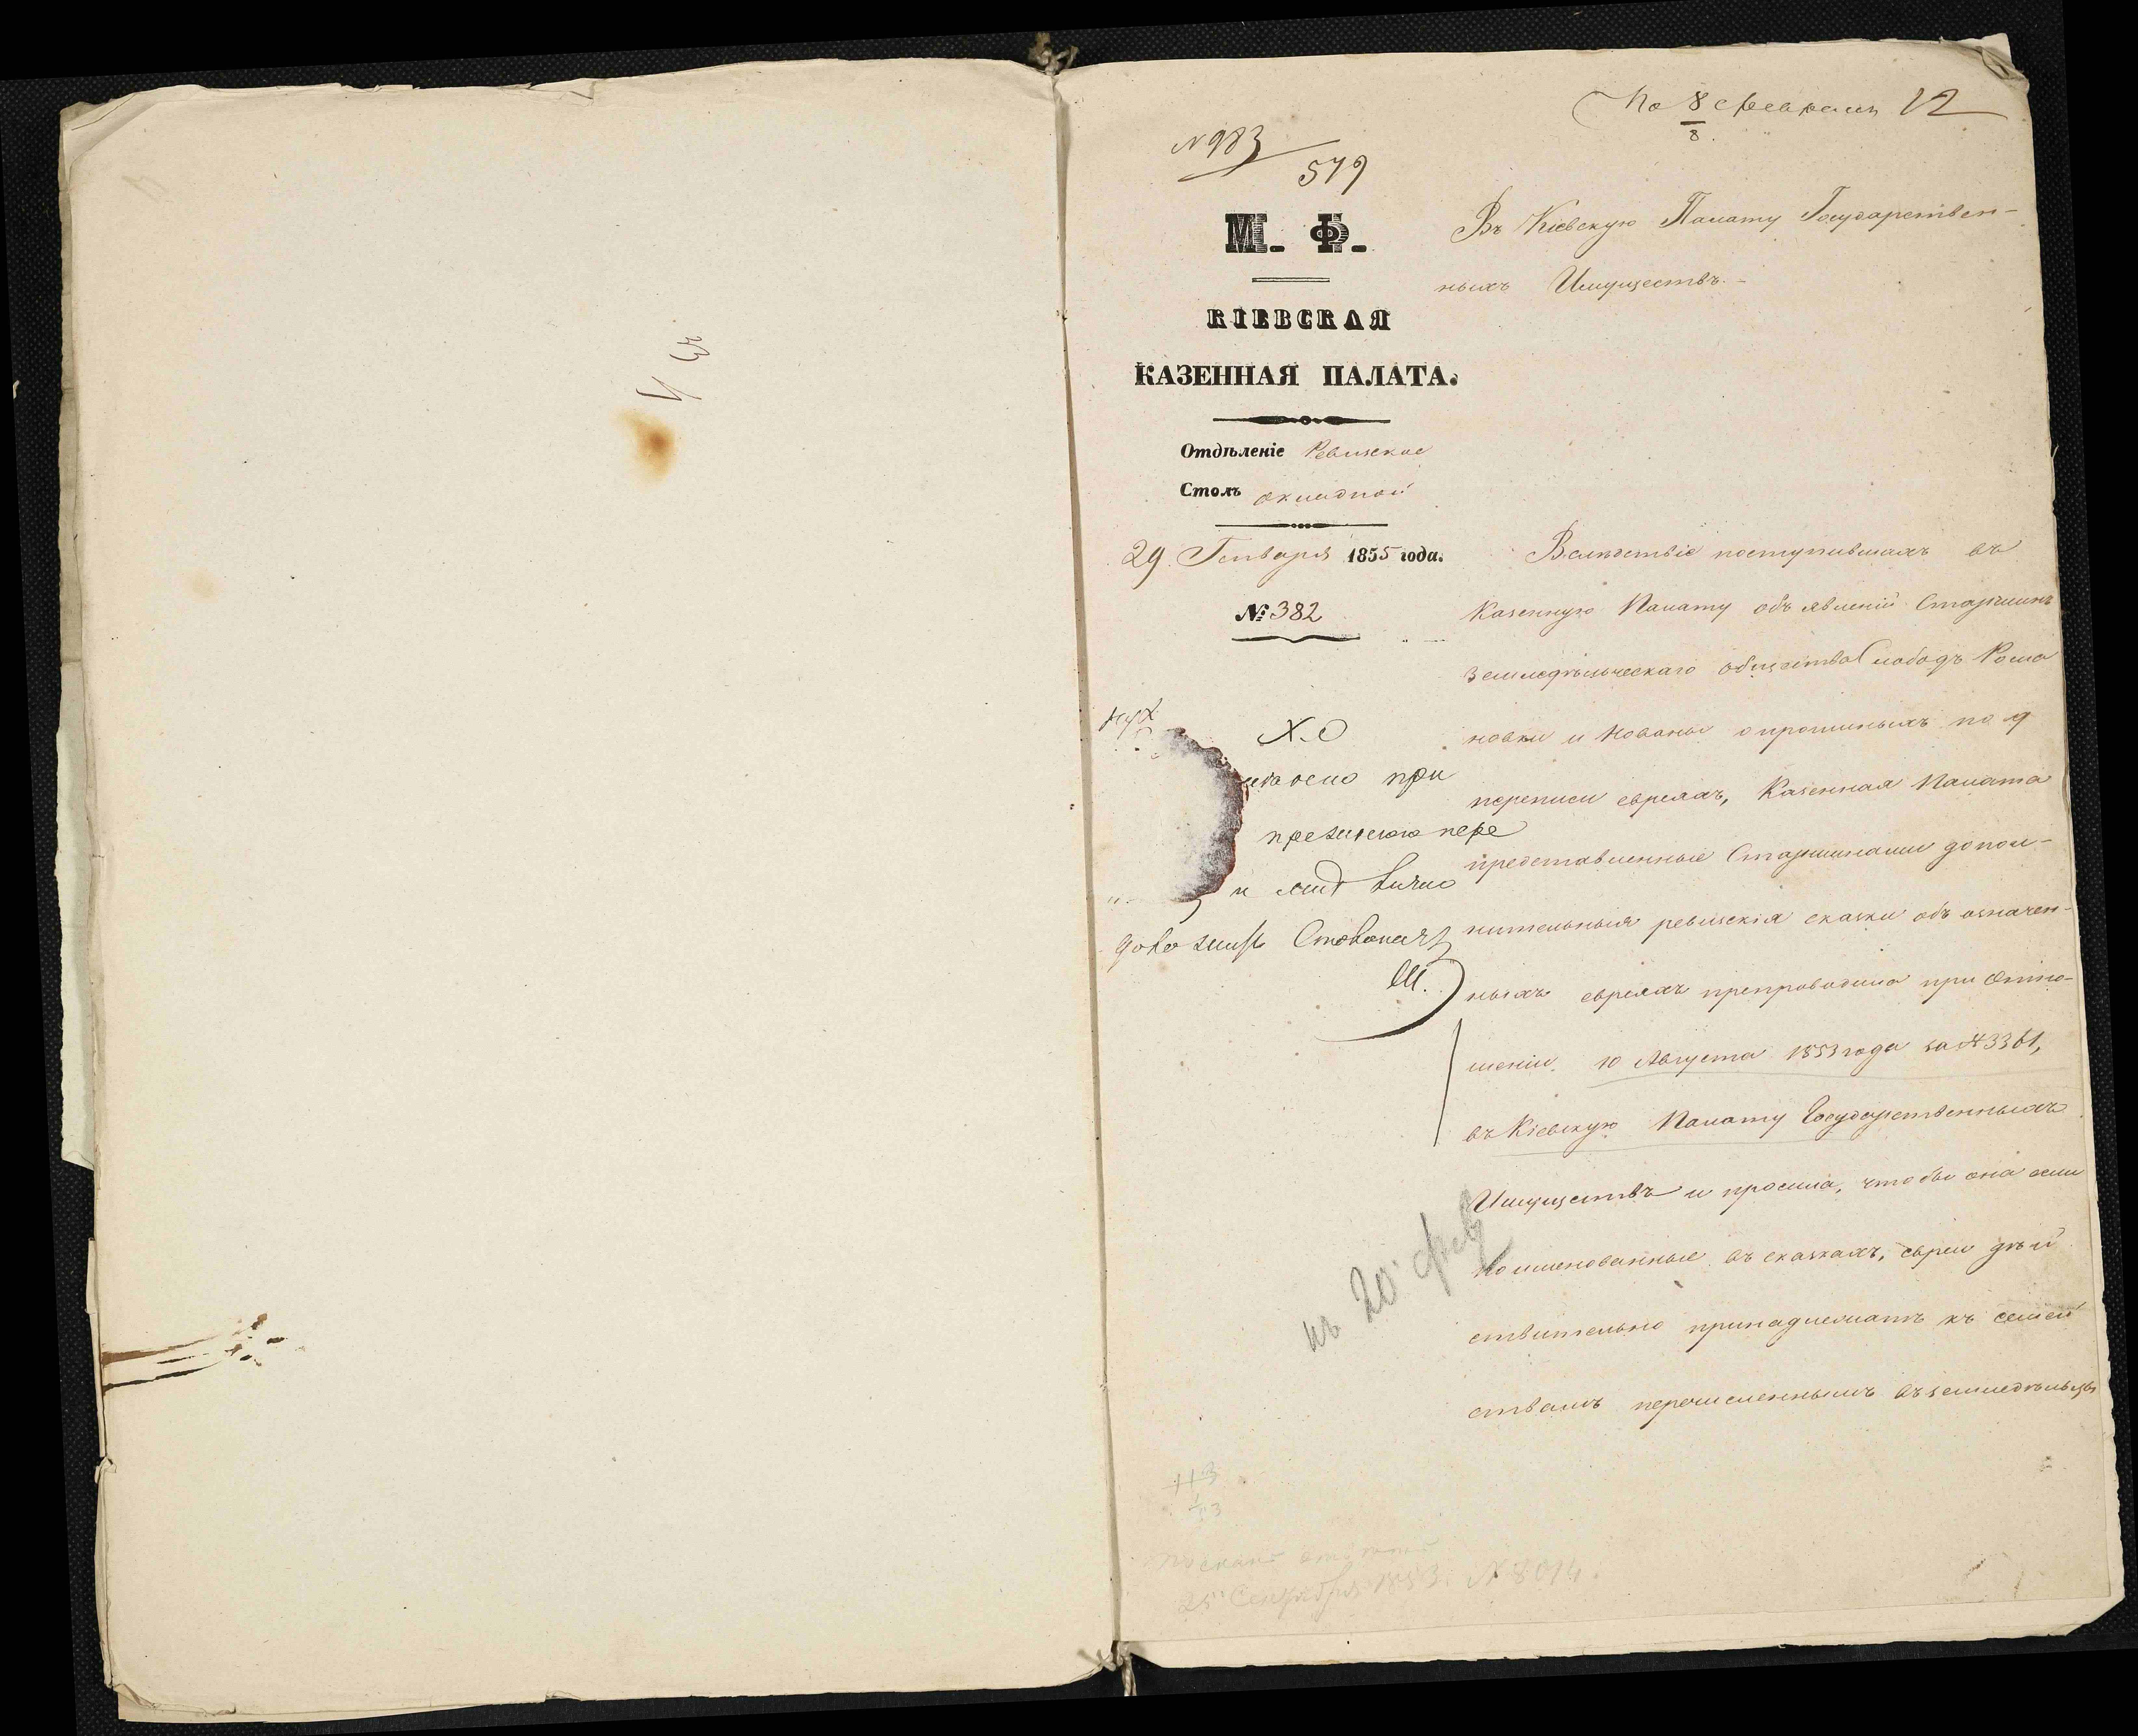 По 8 Февраля 12
8
№ 983
579
М. Ф.
КІЕВСКАЯ
КАЗЕННАЯ ПАЛАТА.
Отдѣленіе Ревизское
Столъ окладной
29 Генваря 1855 года.
№ 382
Въ Кіевскую Палату Государствен-
ныхъ Имуществъ.
Вслѣдствіе поступившихъ въ
Казенную Палату объявленій Старшинъ
земледѣльческаго общества Слободъ Рома
новки и о пропшиныхъ по 9
переписи евреяхъ, Казенная Палата
представленные Старшинами допол-
нительныя ревизскія сказки объ означен-
ныхъ евреяхъ препроводила при Отно-
шеніи 10 Августа 1853 года за № 3361,
въ Кіевскую Палату Государственныхъ
Имуществъ и просила, чтобы она если
поименованные въ сказкахъ, евреи дѣй
ствительно принадлежатъ къ семей
ствамъ перечисленнымъ въ земледѣльцы
Х.О
при
пере
и
къ 20 фев
33
25 Сентября 1853. № 8014.